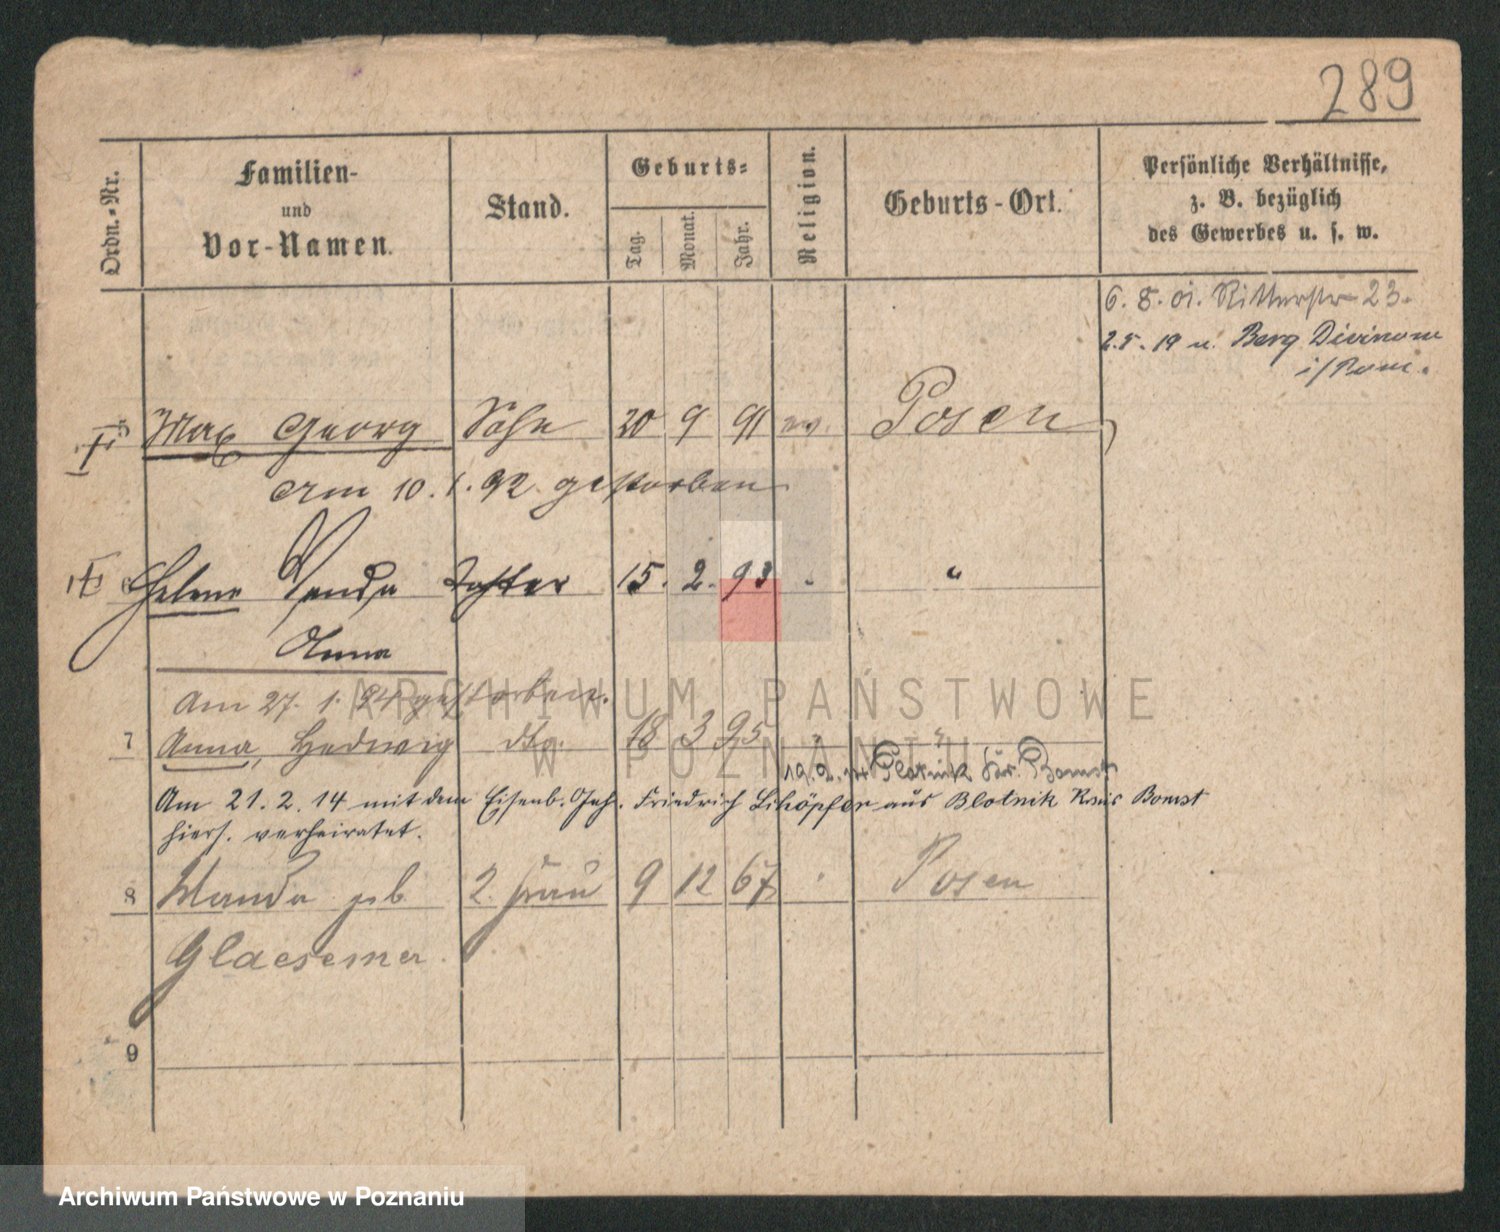 289
Ordn.-Nr.
Familien-
und
Vor-Namen.
Stand.
Geburts-
Tag.
Monat.
Jahr.
Religion.
Geburts-Ort.
Persönliche Verhältnisse,
z. B. bezüglich
des Gewerbes u. s. w.
6. 8. 01. Ritterstr 23.
2.5.19 n. Berg Divenow
i/Pom.
5 Max Georg Sohn 20 9 91 ev. Posen
Am 10. 1. 92 gestorben
6 Helene Wanda Tochter 15. 2. 93 "
Anna
Am 27. 1. 94 gestorben.
7 Anna, Hedwig dto. 18 3 95 "
19.2.14 Blotnik Kr. Bomst
Am 21. 2. 14 mit dem Eisenb. Geh. Friedrich aus Blotnik Kreis Bomst
hiers. verheiratet.
8 Wanda geb 2. Frau 9 12 67 Posen
Glaesemer.
9
ARCHIWUM PAŃSTWOWE
W POZNANIU
Archiwum Państwowe w Poznaniu